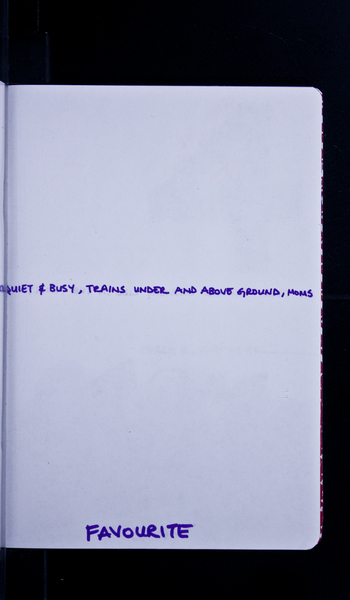 QUIET & BUSY, TRAINS UNDER AND ABOVE GROUND, MOMS
FAVOURITE